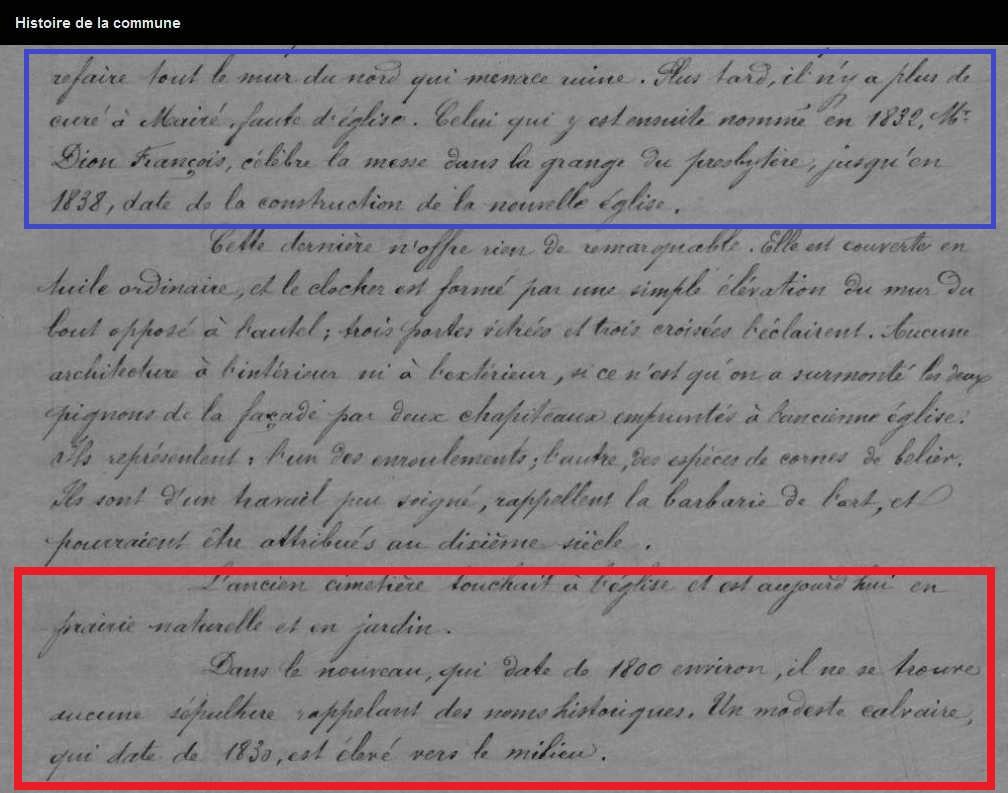 Histoire de la commune
refaire tout le mur du nord qui menace ruine. Plus tard, il n'y a plus de
curé à Mairé, faute d'église. Celui qui y est ensuite nommé en 1832, Mr
Dion François, célèbre la messe dans la grange du presbytère, jusqu'en
1838, date de la construction de la nouvelle église.
Cette dernière n'offre rien de remarquable. Elle est couverte en
tuile ordinaire, et le clocher est formé par une simple élévation du mur du
bout opposé à l'autel ; trois portes vitrées et trois croisées l'éclairent. Aucune
architecture à l'intérieur ni à l'extérieur, si ce n'est qu'on a surmonté les deux
pignons de la façade par deux chapiteaux empruntés à l'ancienne église.
Ils représentent : l'un des enroulements, l'autre, des espèces de cornes de bélier.
Ils sont d'un travail peu soigné, rappellent la barbarie de l'art, et
pourraient être attribués au dixième siècle.
L'ancien cimetière touchait à l'église et est aujourd'hui en
prairie naturelle et en jardin.
Dans le nouveau, qui date de 1800 environ, il ne se trouve
aucune sépulture rappelant des noms historiques. Un modeste calvaire,
qui date de 1830, est élevé vers le milieu.